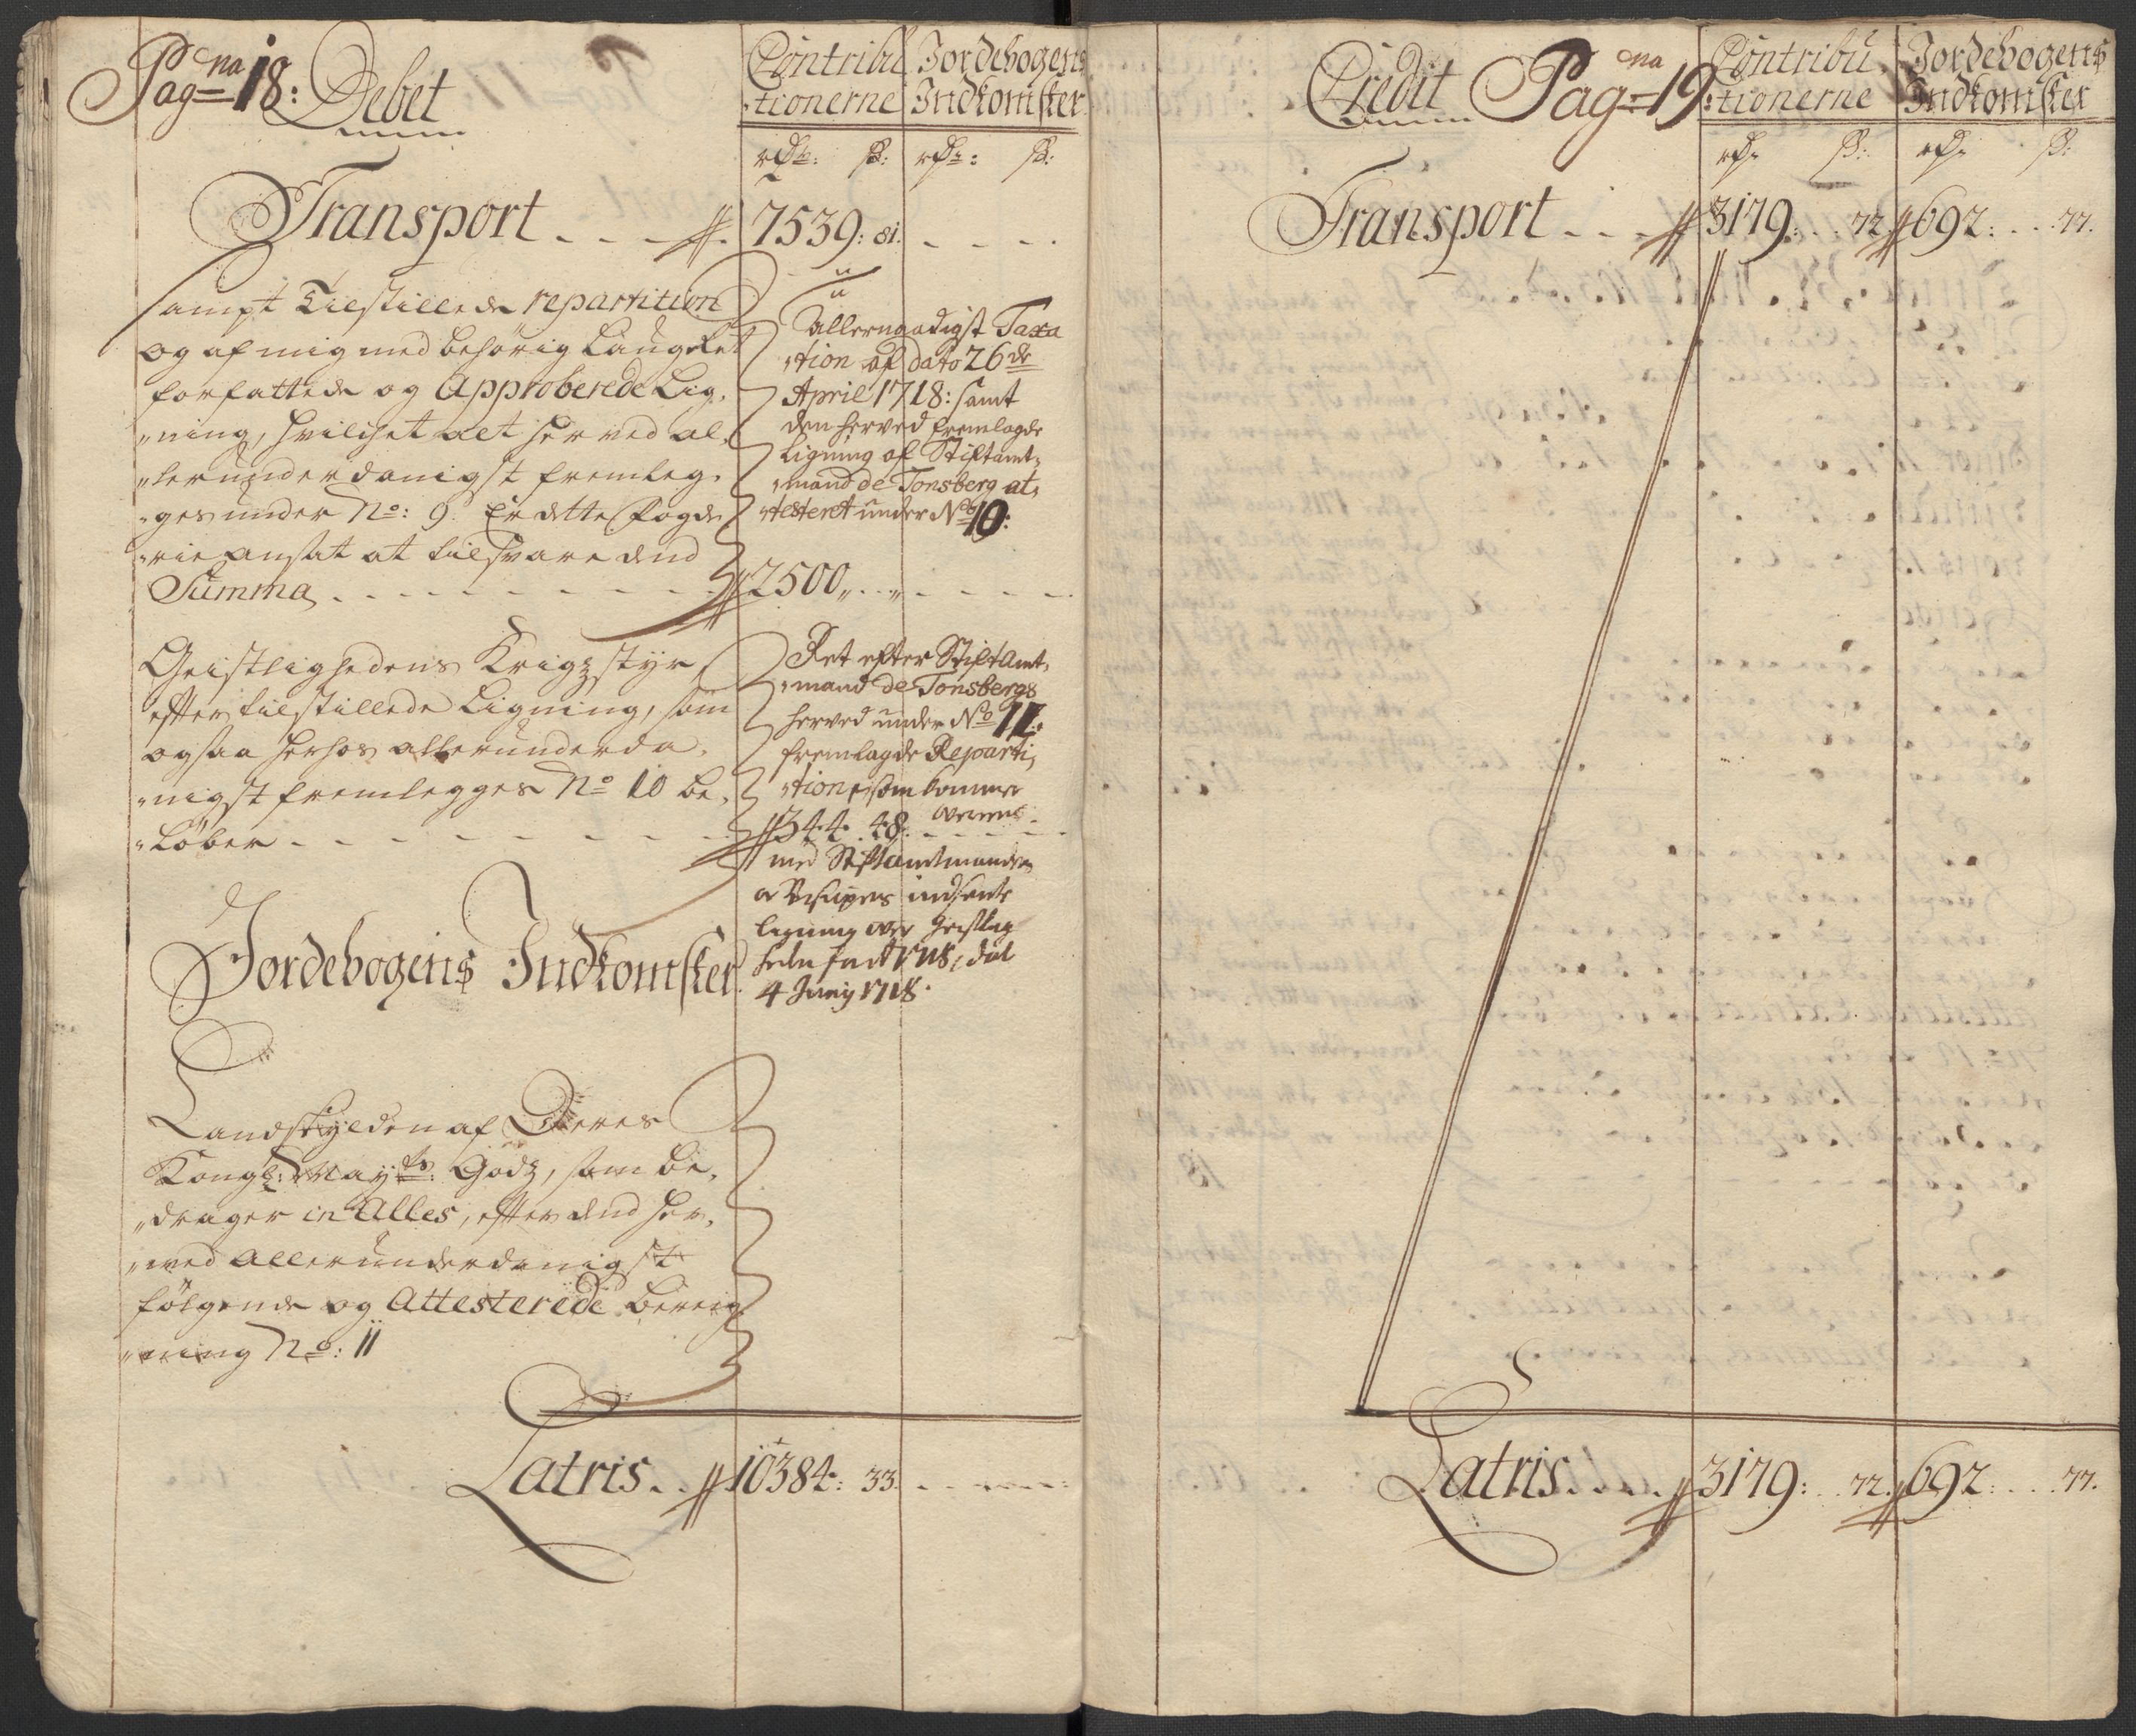 Pag=na 18: Debet
Contribu Jordebogens
tionerne Indkomster
rdr: ß: rdr: ß:
Transport . . . 7539: 81. . . . .
sampt Tilstillede repartition
og af mig med behörig Laugret
forfattede og Approberede Lig,
„ning, hvilchet alt herved al,
„lerunderdanigst fremleg,
„ges under No: 9. Er dette Fogde
„rie ansat at tilsvare dend
Summa . . . . . 2500„ . . „ . . .
Allernaadigst Taxa
„tion af dato 26de
April 1718: samt
den herved fremlagde
Ligning af Stiftamt,
„mand de Tonsberg at,
„testeret under No 10:
Geistlighedens Krigsstyr
efter tilstillede Ligning, som
ogsaa herhos allerunderda,
„nigst fremlegges No 10 be,
„Löber . . . . . 344. 48. . . .
Ret efter Stiftamt,
„mand de Tonsbergs
herved under No 11:
fremlagde Reparti,
„tion, som kommer
overens
med Stiftamtmanden
indsente
ligning over Geistlig
heden 1718, dat
4 Junij 1718.
Jordebogens Indkomster
Landskylden af Deres
Kongl: Mayts: Godz, som be,
„drager in Alles, efter dend her,
„ved allerunderdanigst
fölgende og Attesterede bereig
„ning No: 11
Latris . . 10384: 33. . . . .
Credit Pag=na 19:
Contribu Jordebogens
tionerne Indkomster
rdr ß: rdr ß:
Transport . . . 3179: . . 72. 692: . . . 77.
Latris . . . . 3179: . . 72. 692: . . . 77.